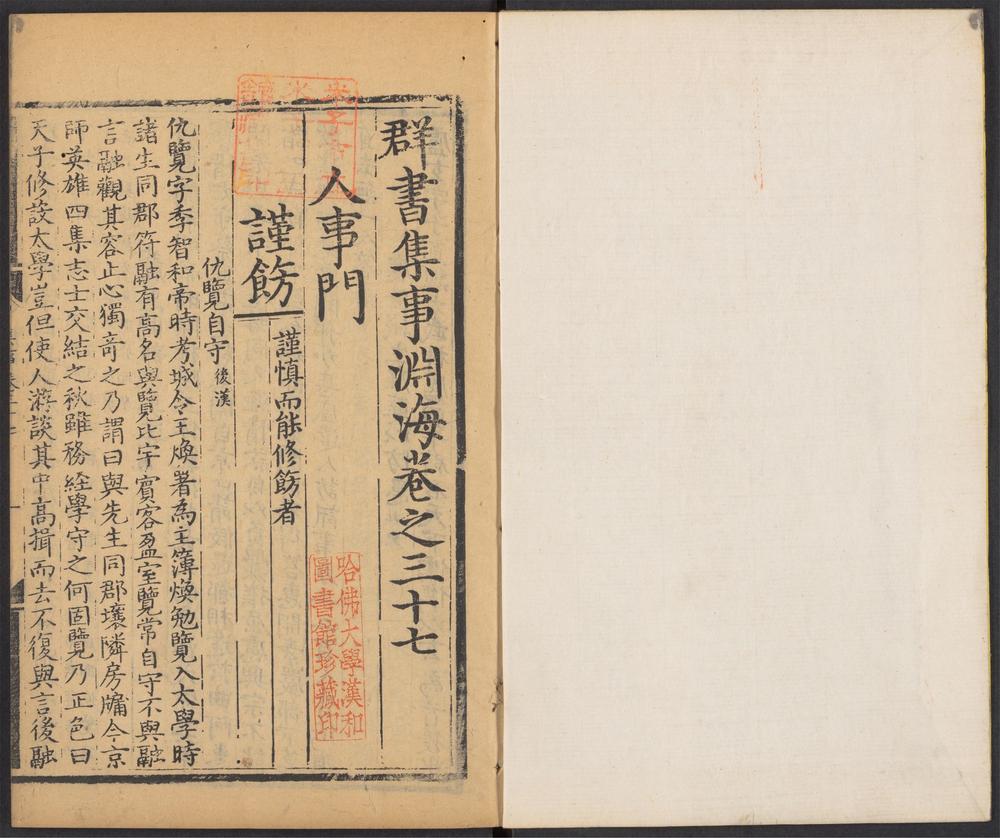 群書集事淵海卷之三十七
人事門
謹飭
謹慎而能修飭者
仇覽自守 後漢
仇覽字季智和帝時考城令王煥署為主簿煥勉覽入太學時
諸生同郡符融有高名與覽比宇賓客盈室覽常自守不與融
言融觀其容止心獨竒之乃謂曰與先生同郡壤隣房牖今京
師英雄四集志士交結之秋雖務經學守之何固覽乃正色曰
天子修設太學豈但使人游談其中高揖而去不復與言後融
哈佛大學漢和
圖書館珍藏印